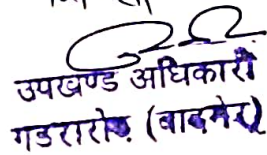 उपखण्ड अधिकारी
गडरारोड़ (बाड़मेर)